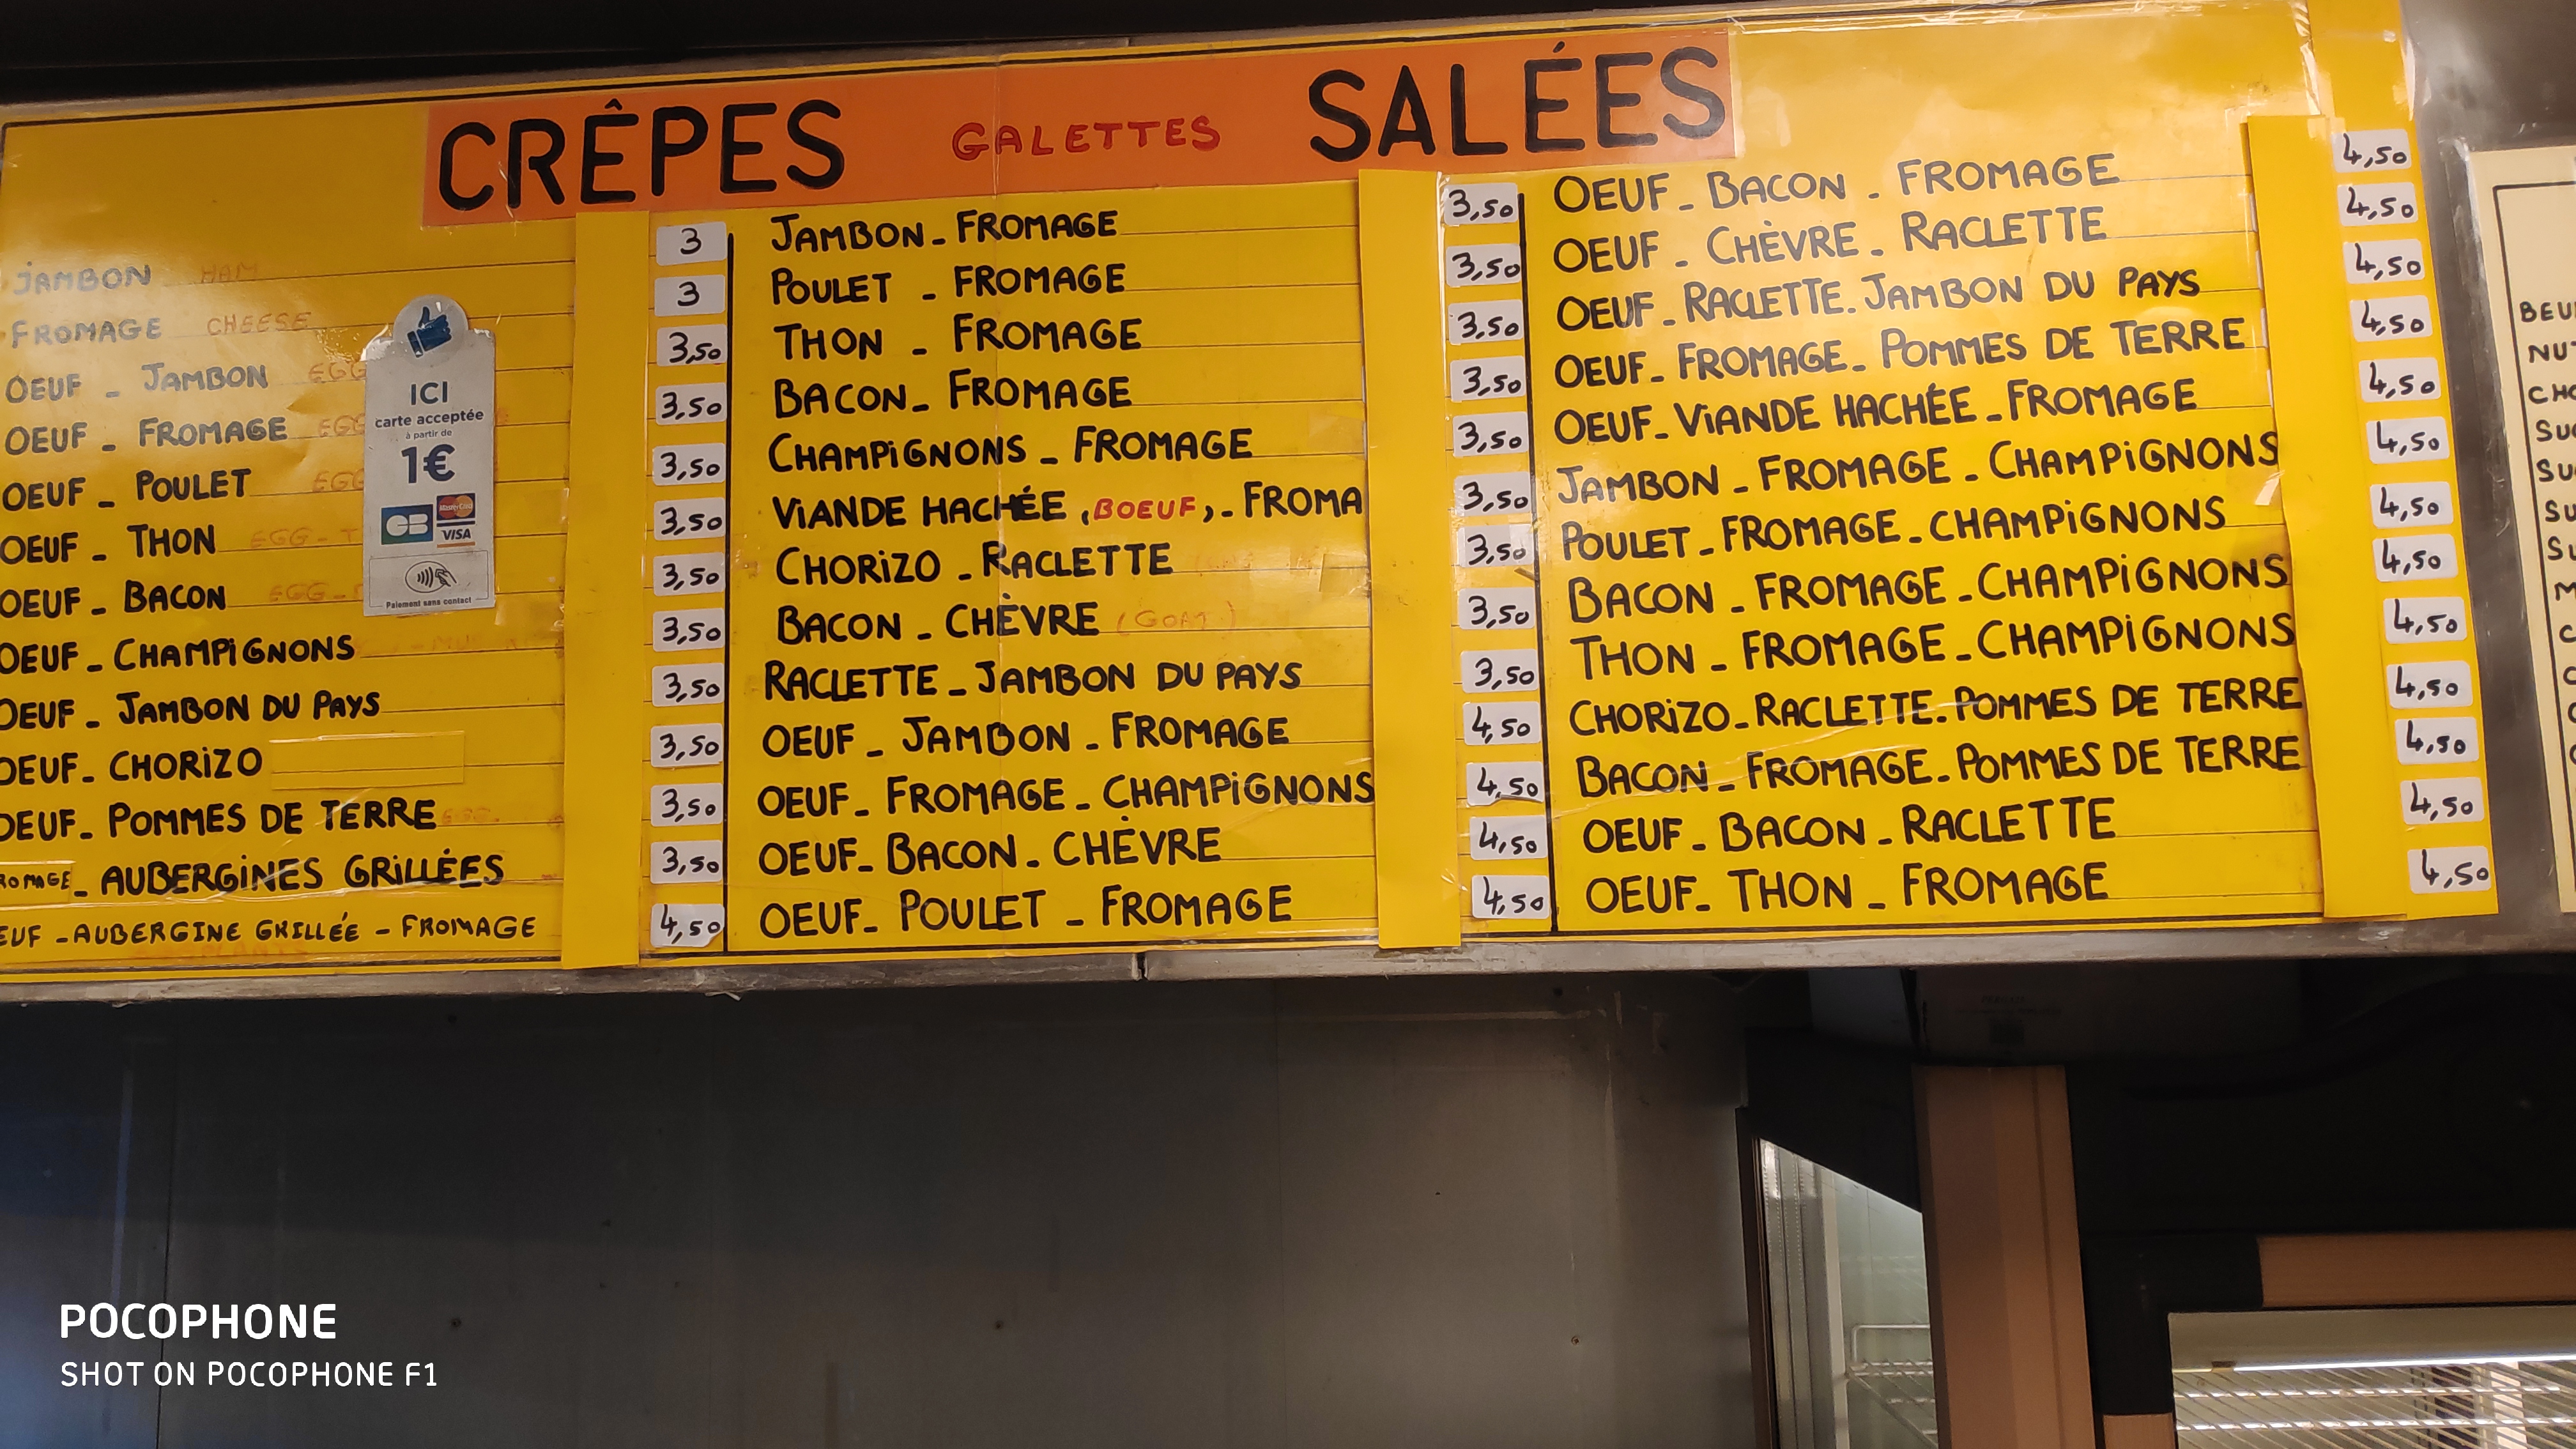 CRÊPES GALETTES SALÉES
JAMBON HAM 3
FROMAGE CHEESE 3
OEUF - JAMBON EGG 3,50
OEUF - FROMAGE EGG 3,50
OEUF - POULET EGG 3,50
OEUF - THON EGG - T 3,50
OEUF - BACON EGG - 3,50
OEUF - CHAMPIGNONS 3,50
OEUF - JAMBON DU PAYS 3,50
OEUF - CHORIZO 3,50
OEUF - POMMES DE TERRE EGG 3,50
ROMAGE - AUBERGINES GRILLÉES 3,50
EUF - AUBERGINE GRILLÉE - FROMAGE 4,50
ICI
carte acceptée
à partir de
1€
CB MasterCard
VISA
Paiement sans contact
JAMBON - FROMAGE 3,50
POULET - FROMAGE 3,50
THON - FROMAGE 3,50
BACON - FROMAGE 3,50
CHAMPIGNONS - FROMAGE 3,50
VIANDE HACHÉE (BOEUF) - FROMA 3,50
CHORIZO - RACLETTE 3,50
BACON - CHÈVRE (GOAT) 3,50
RACLETTE - JAMBON DU PAYS 3,50
OEUF - JAMBON - FROMAGE 4,50
OEUF - FROMAGE - CHAMPIGNONS 4,50
OEUF - BACON - CHÈVRE 4,50
OEUF - POULET - FROMAGE 4,50
OEUF - BACON - FROMAGE 4,50
OEUF - CHÈVRE - RACLETTE 4,50
OEUF - RACLETTE - JAMBON DU PAYS 4,50
OEUF - FROMAGE - POMMES DE TERRE 4,50
OEUF - VIANDE HACHÉE - FROMAGE 4,50
JAMBON - FROMAGE - CHAMPIGNONS 4,50
POULET - FROMAGE - CHAMPIGNONS 4,50
BACON - FROMAGE - CHAMPIGNONS 4,50
THON - FROMAGE - CHAMPIGNONS 4,50
CHORIZO - RACLETTE - POMMES DE TERRE 4,50
BACON - FROMAGE - POMMES DE TERRE 4,50
OEUF - BACON - RACLETTE 4,50
OEUF - THON - FROMAGE 4,50
BEU
NUT
CHO
SU
SU
SU
SU
M
POCOPHONE
SHOT ON POCOPHONE F1